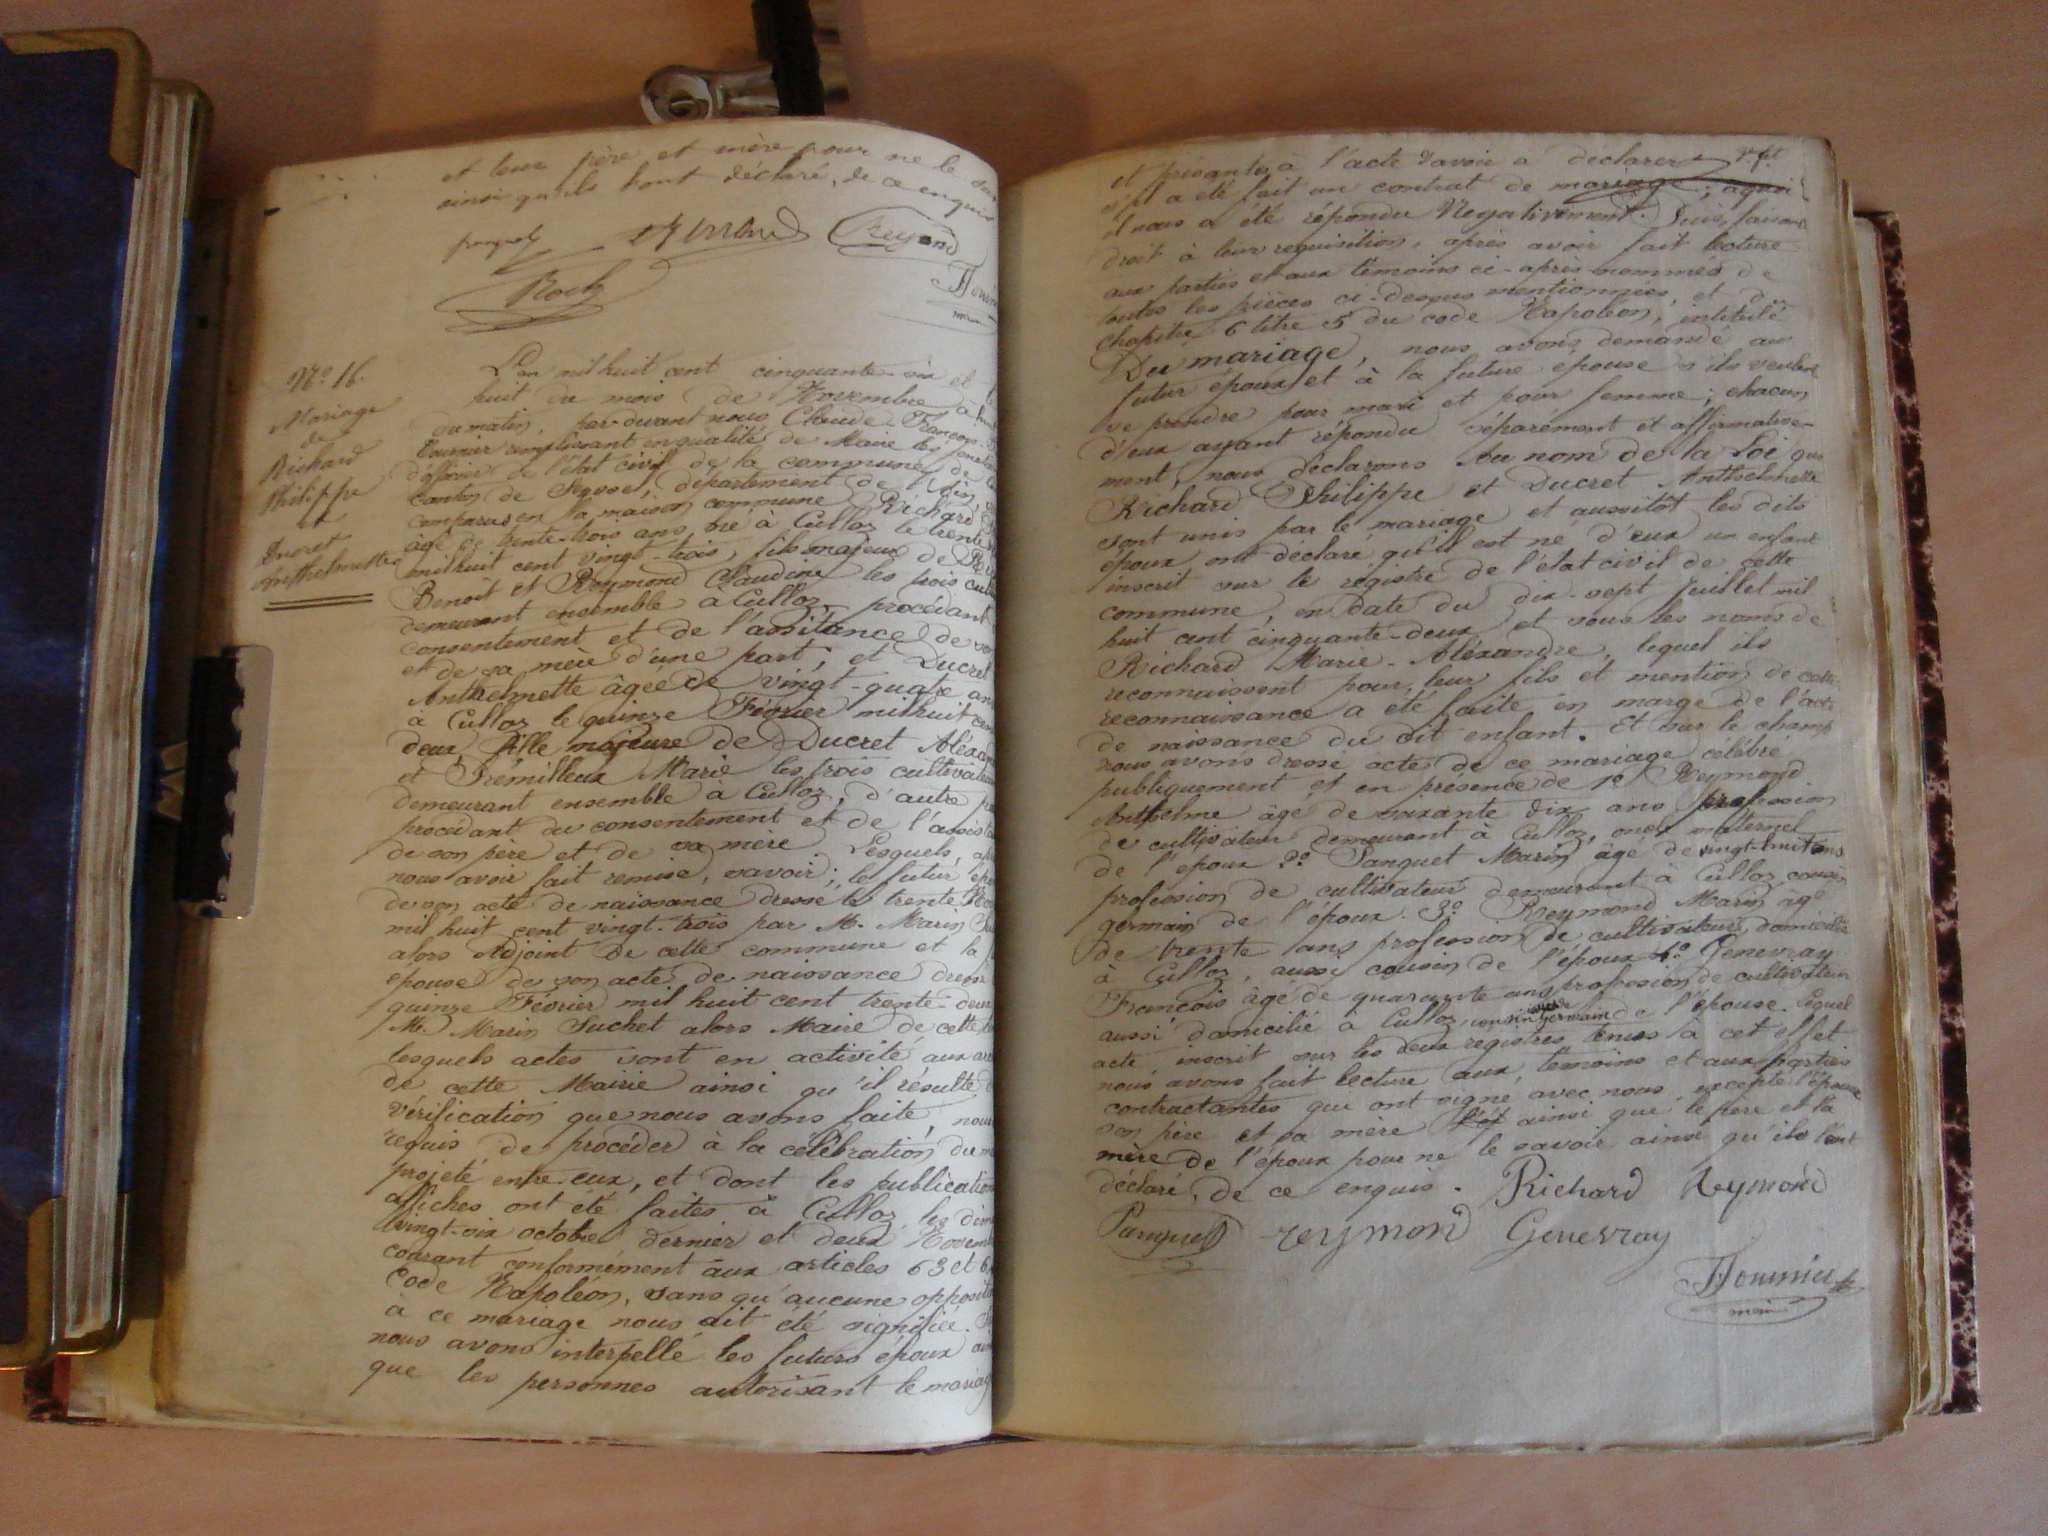 et leur père et mère pour ne le
ainsi qu'ils l'ont déclaré, de ce enquis
Reymond
Roch
N.º 16.
Mariage
de
Richard
Philippe
et
Ducret
Anthelmette
L'an mil huit cent cinquante-six et
huit du mois de Novembre à
du matin, par-devant nous Claude François
Fournier remplissant en qualité de Maire les
d'officier de l'état civil de la commune de
canton de Seyssel, département de l'Ain,
comparus en la maison commune Richard
âgé de trente-trois ans, né à Culloz le trente
mil huit cent vingt-trois, fils majeur de
Benoit et Reymond Claudine les trois
demeurant ensemble à Culloz, procédant
consentement et de l'assitance de son
et de sa mère d'une part; et Ducret
Anthelmette âgée de vingt-quatre ans
à Culloz le quinze Février mil huit cent
deux, fille majeure de Ducret
et Trémilleux Marie les trois
demeurant ensemble à Culloz, d'autre
procédant du consentement et de
de son père et de sa mère. Lesquels,
nous avoir fait remise, savoir; le futur
de son acte de naissance dressé le trente
mil huit cent vingt-trois par M. Marin
alors Adjoint de cette commune et la
épouse de son acte de naissance
quinze Février mil huit cent trente-deux
M. Marin Suchet alors Maire de cette
lesquels actes sont en activité aux
de cette Mairie ainsi qu'il résulte
vérification que nous avons faite, nous
requis de procéder à la célébration du
projeté entre eux, et dont les publications
affiches ont été faites à Culloz les
vingt-six octobre dernier et deux
courant conformément aux articles 63 et
Code Napoléon, sans qu'aucune
à ce mariage nous ait été signifiée.
nous avons interpellé les futurs époux
que les personnes autorisant le mariage
et présentes à l'acte d'avoir à déclarer
s'il a été fait un contrat de mariage; a quoi
il nous a été répondu Negativement. Puis, faisant
droit à leur requisition, après avoir fait lecture
aux parties et aux témoins ci-après nommés de
toutes les pièces ci-dessus mentionnées, et du
chapitre 6 titre 5 du code Napoléon, intitulé
Du mariage, nous avons demandé au
futur époux et à la future épouse s'ils veulent
se prendre pour mari et pour femme; chacun
d'eux ayant répondu séparément et affirmative-
ment, nous déclarons Au nom de la Loi que
Richard Philippe et Ducret Anthelmette
sont unis par le mariage et aussitôt les dits
époux ont déclaré qu'il est né d'eux un enfant
inscrit sur le régistre de l'état civil de cette
commune, en date du dix-sept Juillet mil
huit cent cinquante-deux et sous les noms de
Richard Marie-Aléxandre, lequel ils
reconnaissent pour leur fils et mention de cette
reconnaissance a été faite en marge de l'acte
de naissance du dit enfant. Et sur le champ
nous avons dressé acte de ce mariage célébré
publiquement et en présence de 1º Reymond
Anthelme âgé de soixante dix ans profession
de cultivateur demeurant à Culloz, oncle maternel
de l'époux 2º Panquet Marin âgé de vingt-huit ans
profession de cultivateur demeurant à Culloz cousin
germain de l'époux. 3º Reymond Marin âgé
de trente ans profession de cultivateur domicilié
à Culloz, aussi cousin de l'époux 4º Genevray
François âgé de quarante ans profession de cultivateur
aussi domicilié à Culloz, cousin germain de l'épouse. Lequel
acte inscrit sur les deux registres tenus à cet effet
nous avons fait lecture aux témoins et aux parties
contractantes qui ont signé avec nous, excepté l'épouse
son père et sa mère ainsi que le père et la
mère de l'époux pour ne le savoir ainsi qu'ils l'ont
déclaré, de ce enquis. Richard Reymond
Panquet reymond Genevray
Fournier
maire